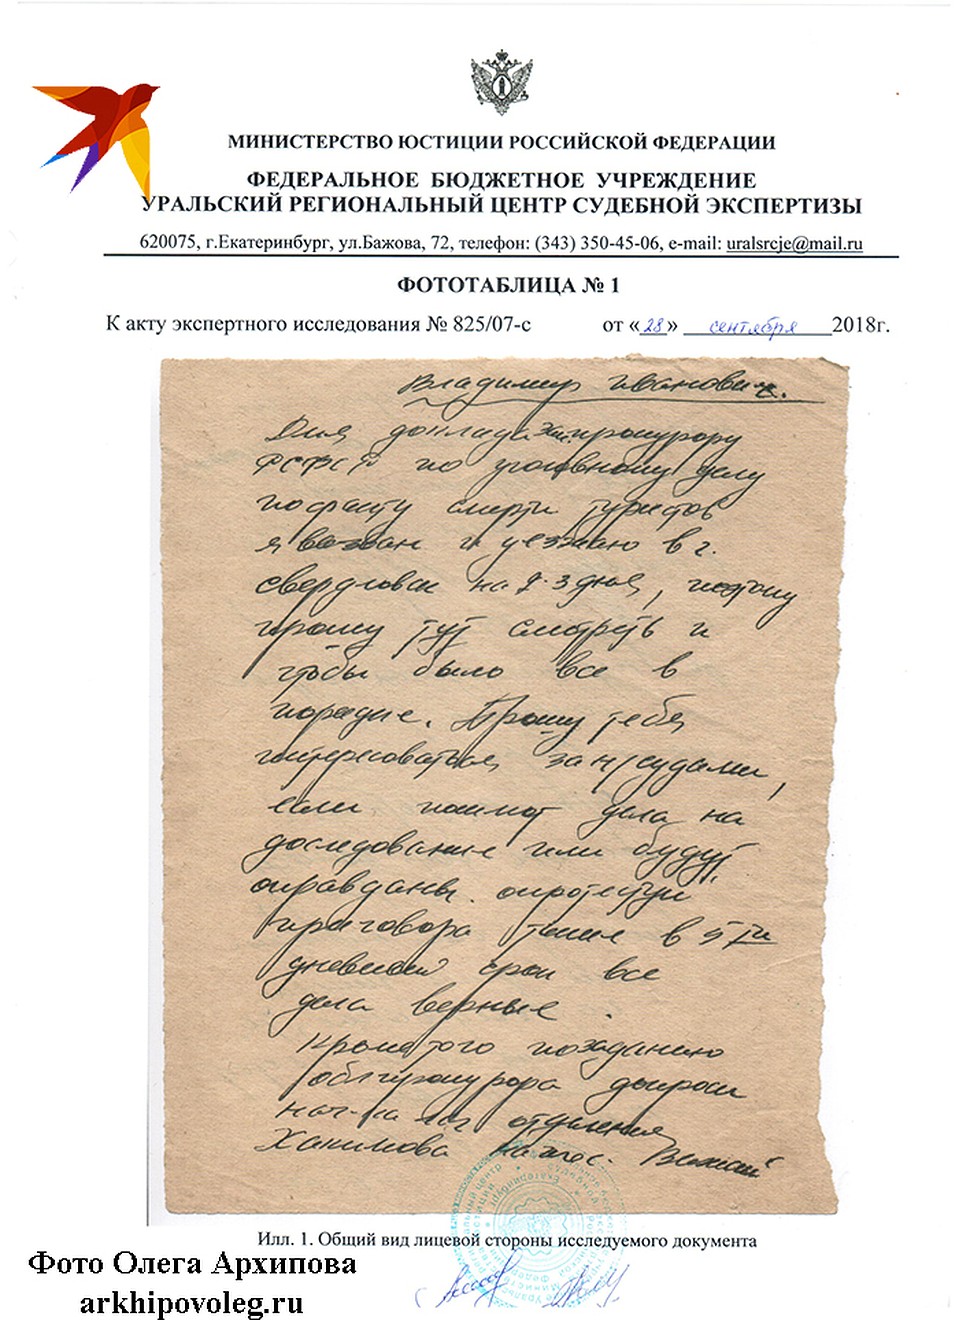 МИНИСТЕРСТВО ЮСТИЦИИ РОССИЙСКОЙ ФЕДЕРАЦИИ
ФЕДЕРАЛЬНОЕ БЮДЖЕТНОЕ УЧРЕЖДЕНИЕ
УРАЛЬСКИЙ РЕГИОНАЛЬНЫЙ ЦЕНТР СУДЕБНОЙ ЭКСПЕРТИЗЫ
620075, г.Екатеринбург, ул.Бажова, 72, телефон: (343) 350-45-06, e-mail: uralsrcje@mail.ru
ФОТОТАБЛИЦА № 1
К акту экспертного исследования № 825/07-с от «28» сентября 2018г.
Владимир Иванович.
Для доклада зам. прокурору
РСФСР по уголовному делу
по факту смерти туристов
я вызван и уезжаю в г.
Свердловск на 2-3 дня, поэтому
прошу тут смотреть и
чтобы было все в
порядке. Прошу тебя
интересоваться за н/судами,
если пошлют дела на
доследование или будут
оправданы. опротестуй
приговора только в 5 ти
дневный срок все
дела верные.
Кроме того по заданию
облпрокурора допроси
нач-ка отделения
Хакимова
Илл. 1. Общий вид лицевой стороны исследуемого документа
Фото Олега Архипова
arkhipovoleg.ru